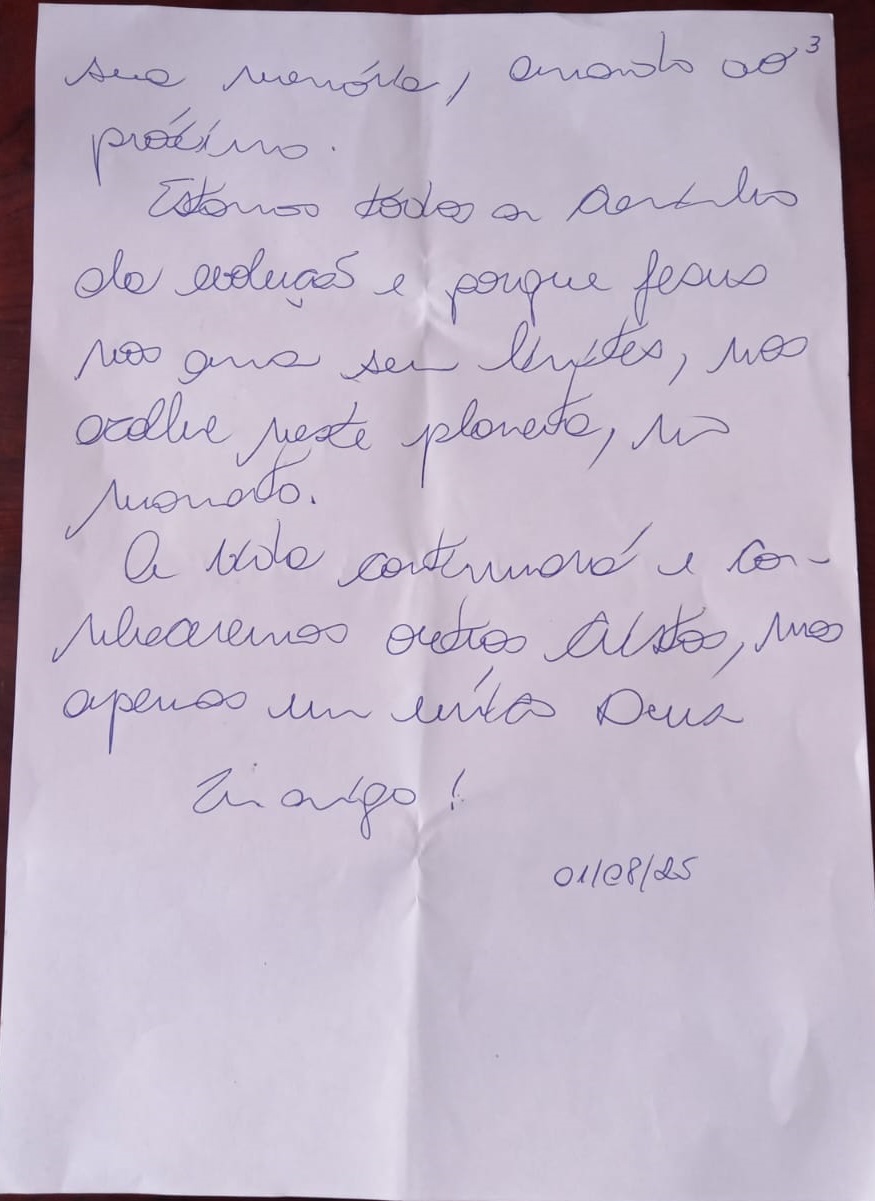 sua memória, amando ao 3
próximo.
Estamos todos a caminho
da evolução e porque Jesus
nos ama sem limites, nos
acolhe neste planeta, no
momento.
A vida continuará e co-
nheceremos outros Cristos, mas
apenas um único Deus
amigo!
01/08/25